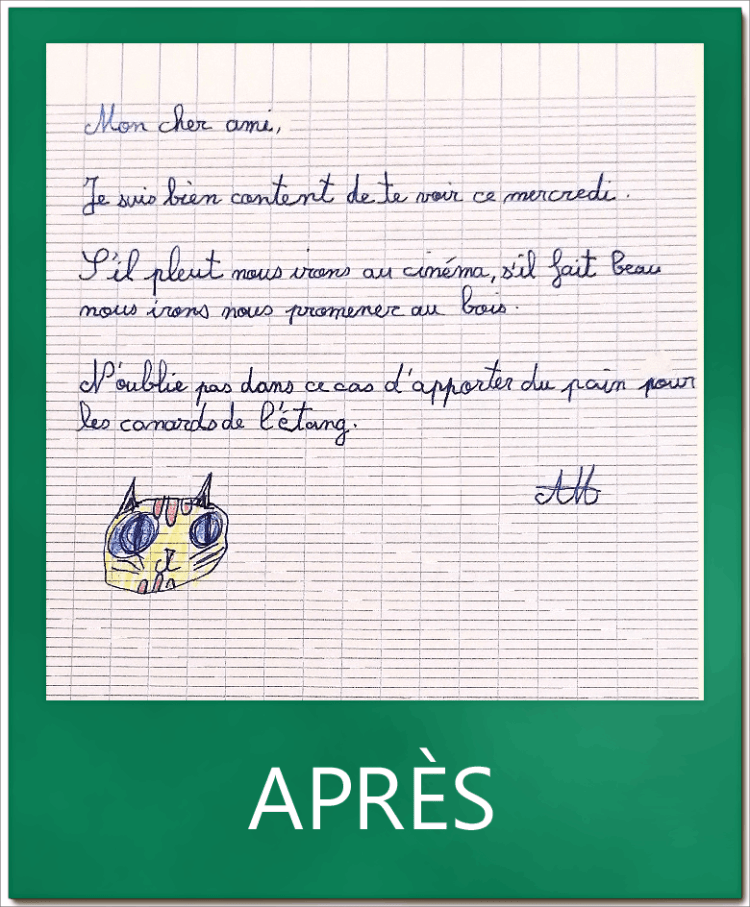 Mon cher ami,
Je suis bien content de te voir ce mercredi.
S'il pleut nous irons au cinéma, s'il fait beau
nous irons nous promener au bois.
N'oublie pas dans ce cas d'apporter du pain pour
les canards de l'étang.
AH
APRÈS